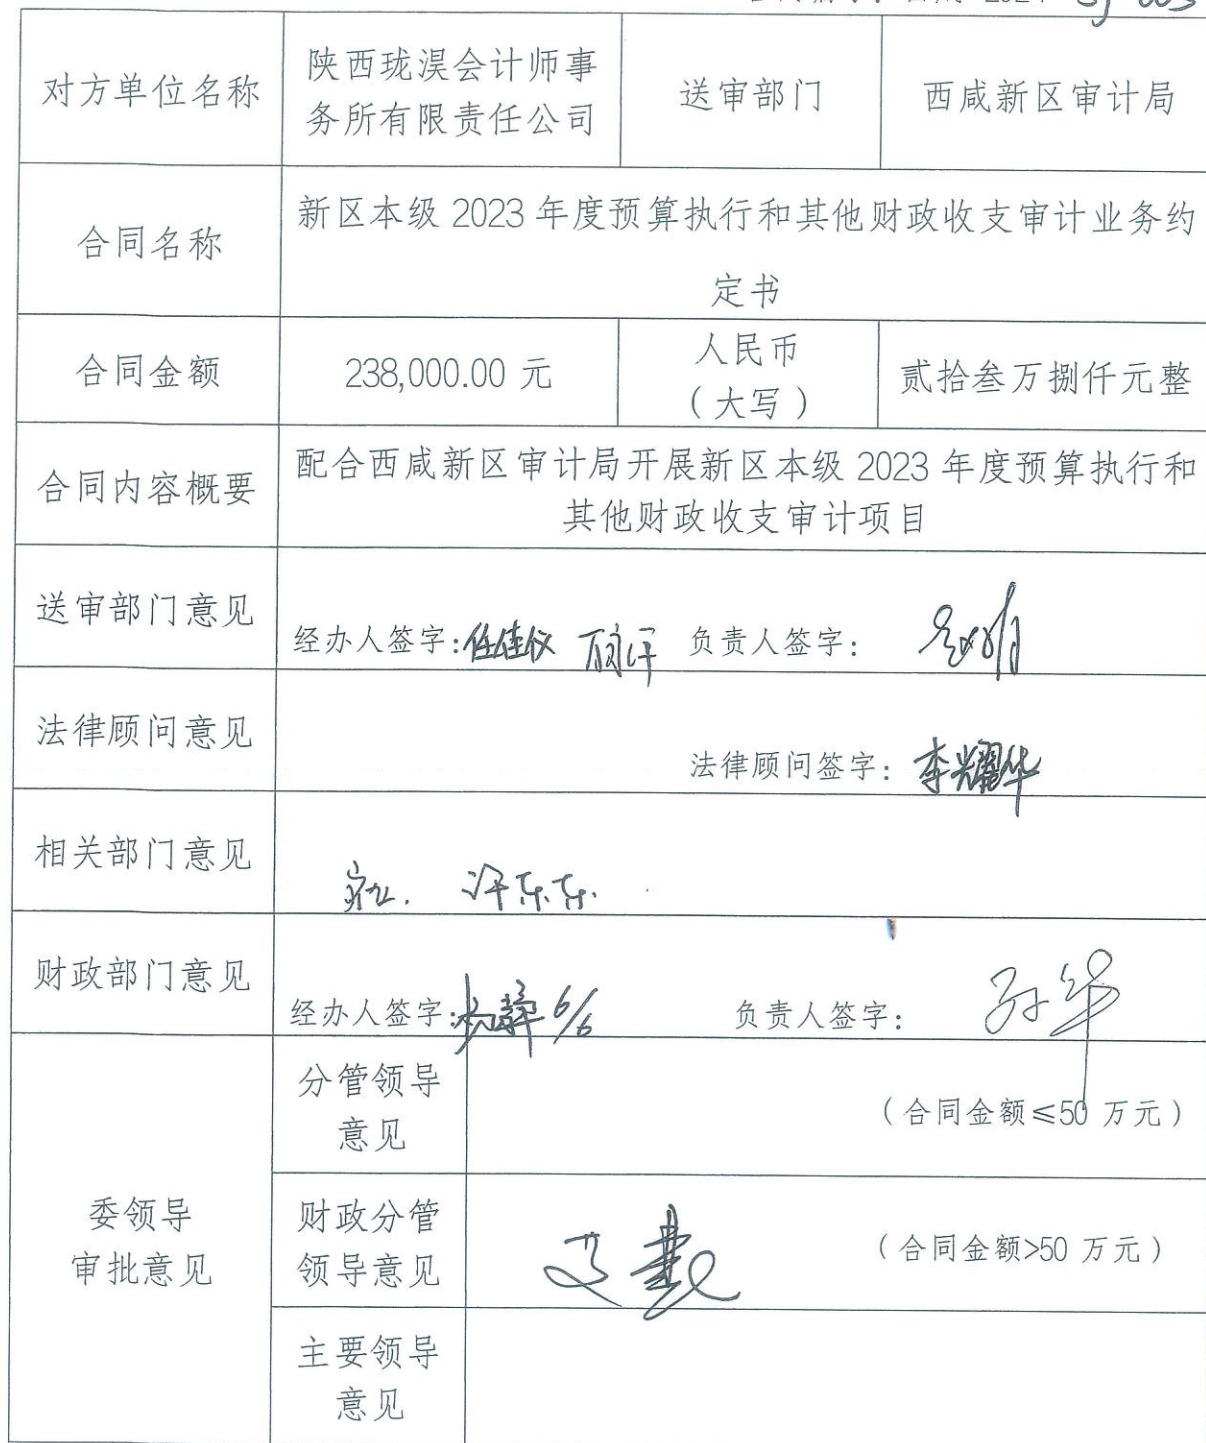 2024
对方单位名称
陕西珑淏会计师事
务所有限责任公司
送审部门
西咸新区审计局
合同名称
新区本级 2023 年度预算执行和其他财政收支审计业务约
定书
合同金额
238,000.00 元
人民币
（大写）
贰拾叁万捌仟元整
合同内容概要
配合西咸新区审计局开展新区本级 2023 年度预算执行和
其他财政收支审计项目
送审部门意见
经办人签字:任佳仪
负责人签字:
法律顾问意见
法律顾问签字: 李耀华
相关部门意见
许东东.
财政部门意见
经办人签字: 6/6
负责人签字: 孙华
委领导
审批意见
分管领导
意见
（合同金额≤50 万元）
财政分管
领导意见
（合同金额>50 万元）
主要领导
意见